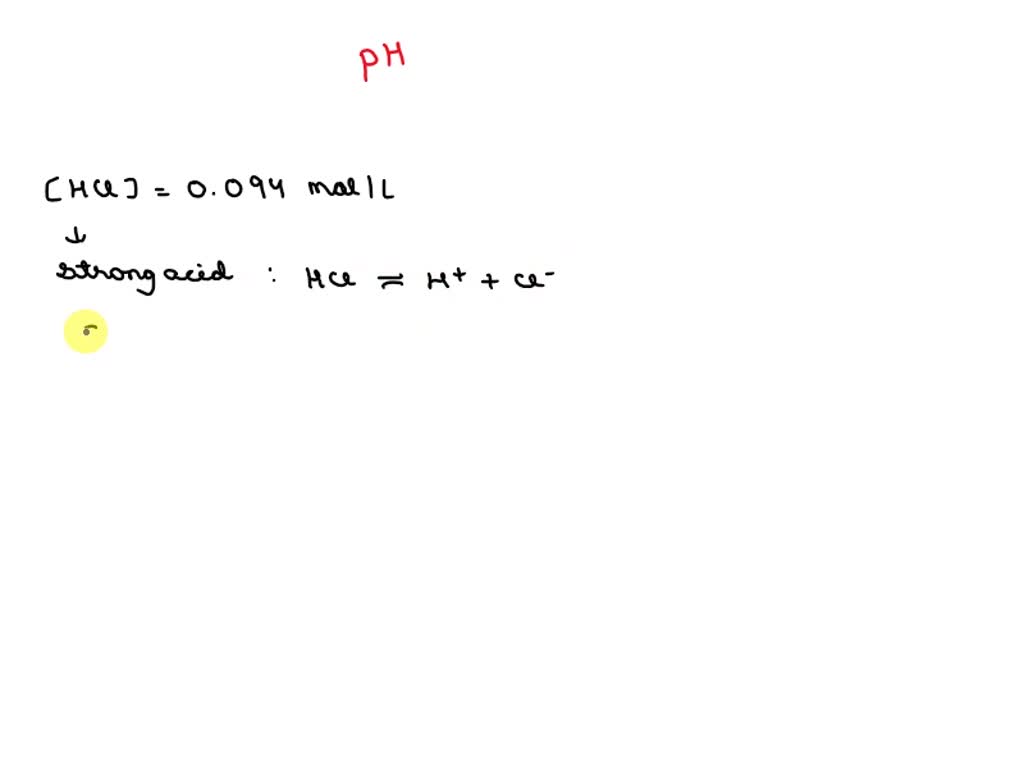 pH
[HCl] = 0.094 mol/L
↓
strong acid : HCl ⇌ H⁺ + Cl⁻